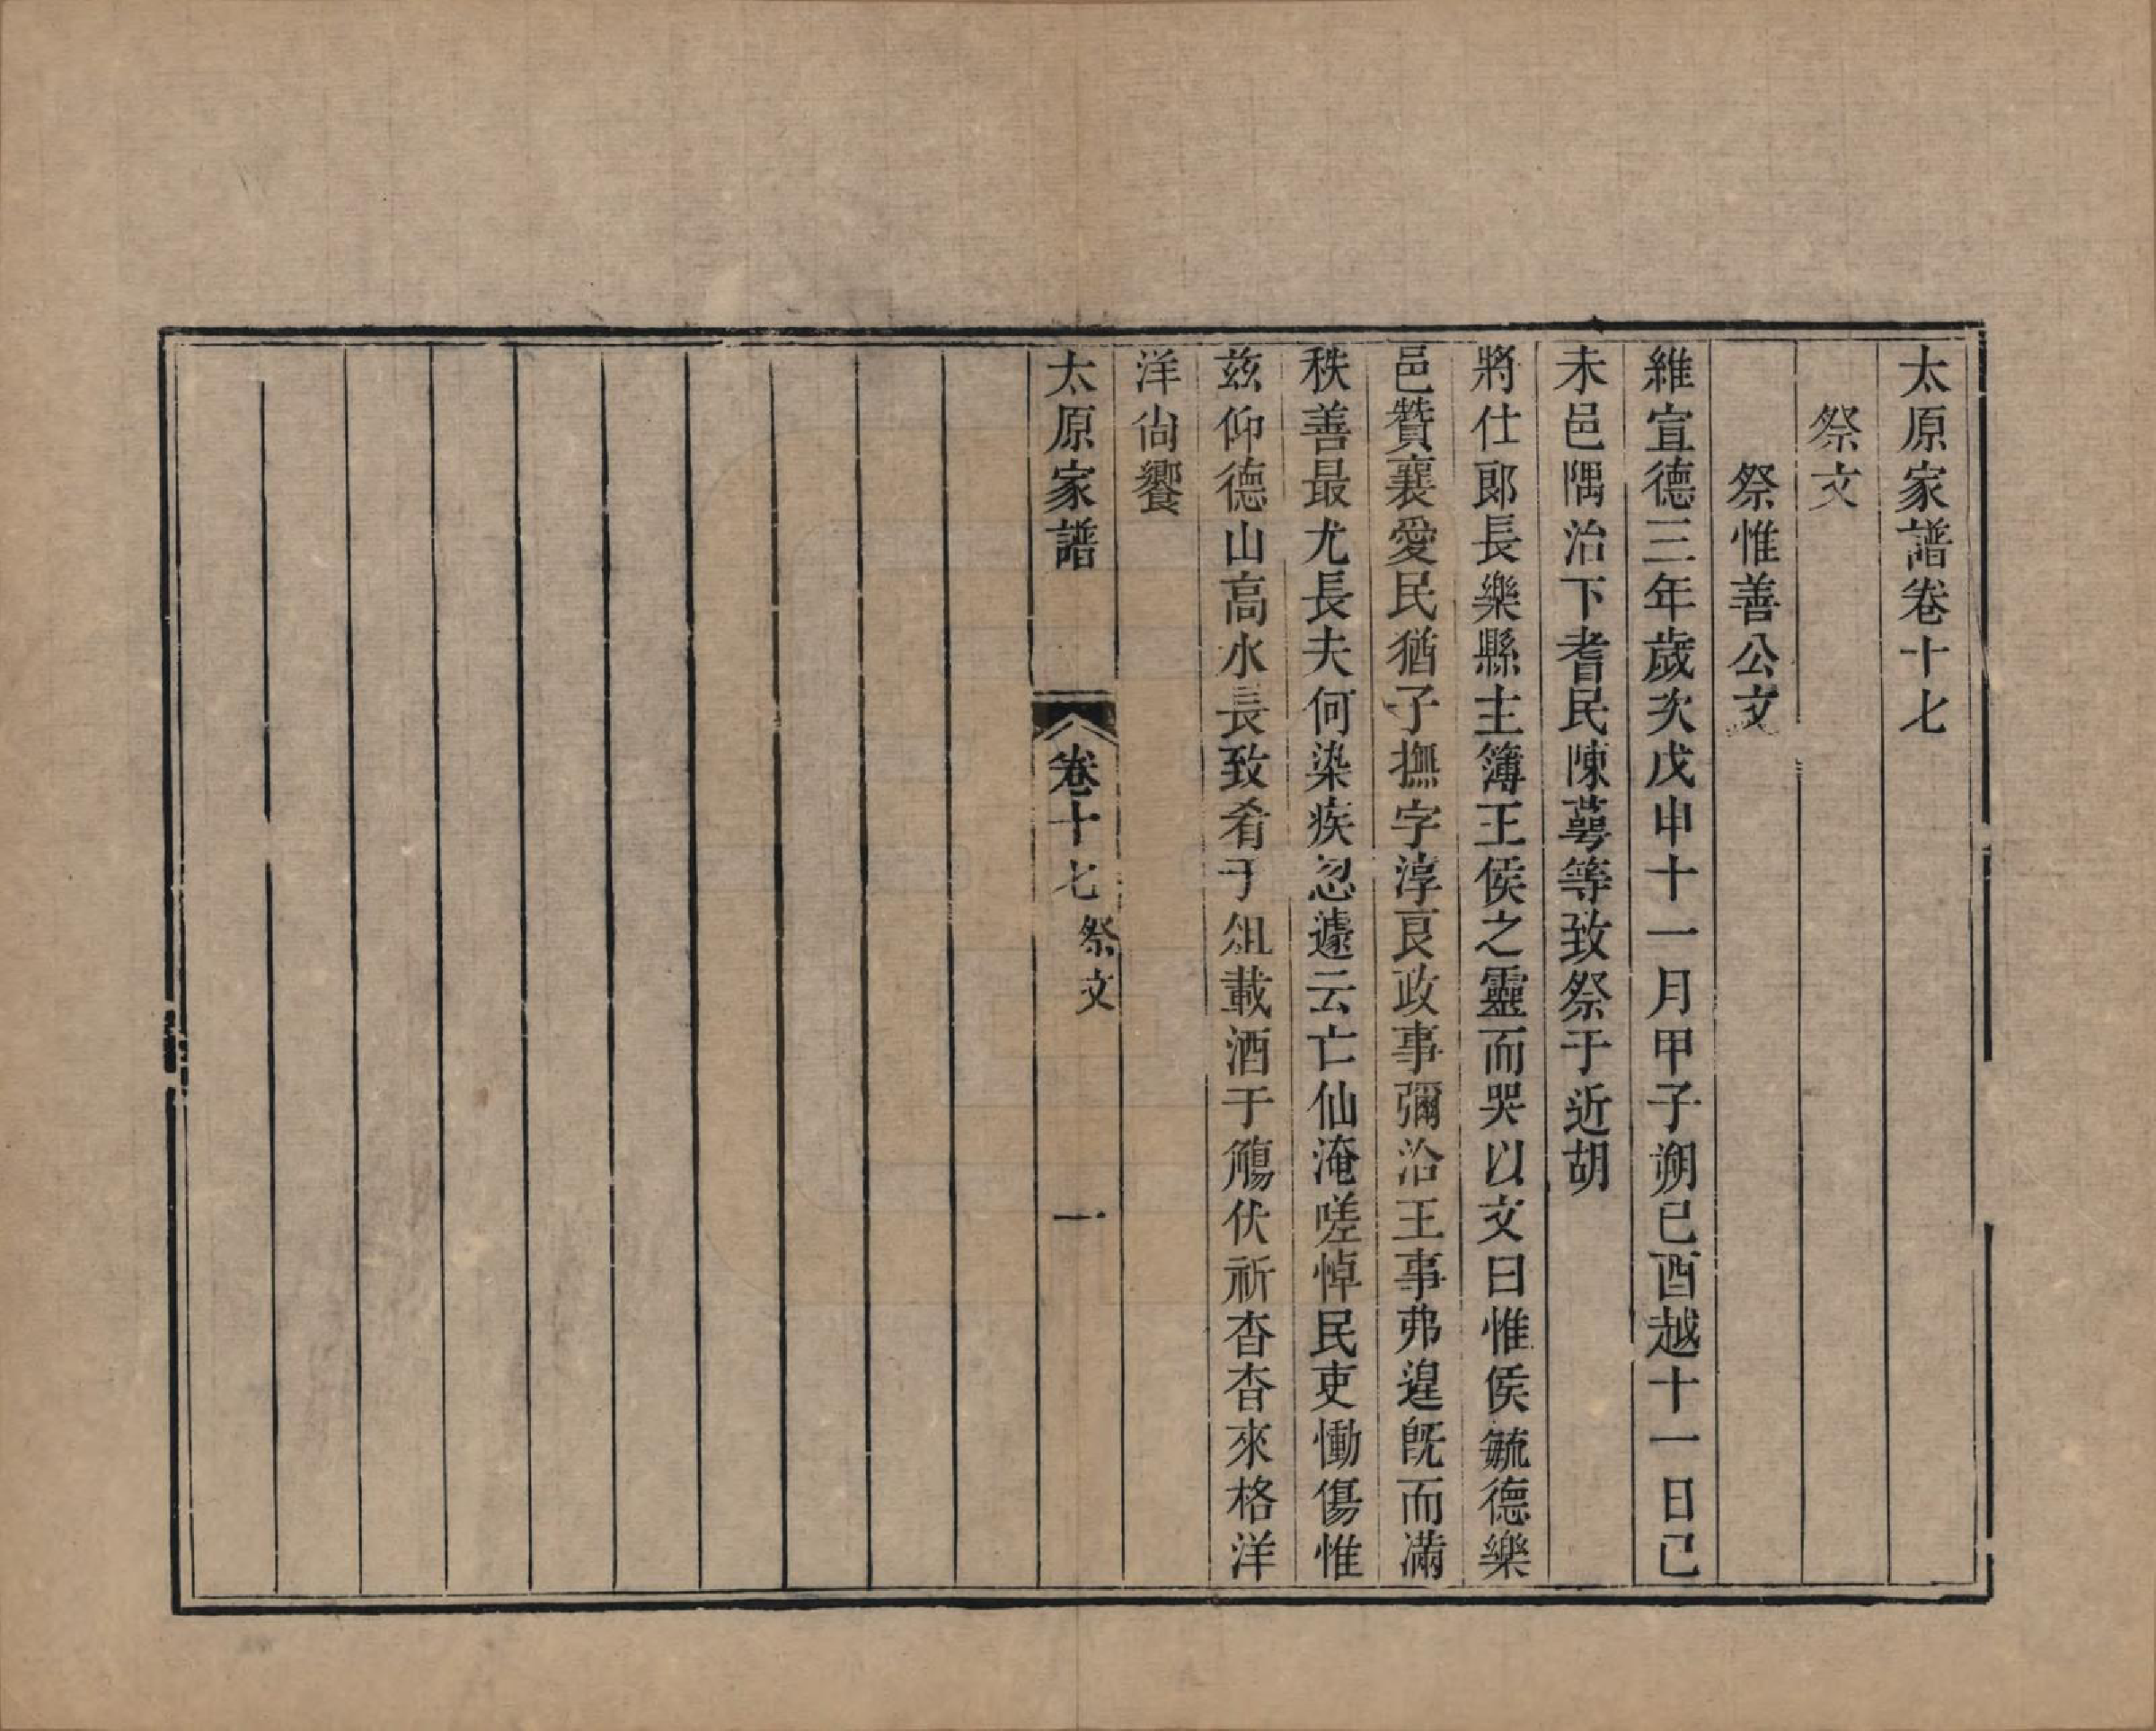 太原家譜卷十七
祭文
祭惟善公文
維宣德三年歲次戊申十一月甲子朔已酉越十一日己
未邑隅治下耆民陳蕚等致祭于近胡
將仕郞長樂縣主簿王侯之靈而哭以文曰惟侯毓德樂
邑贊襄愛民猶子撫字淳良政事彌洽王事弗遑旣而滿
秩善最尤長夫何染疾忽遽云亡仙淹嗟悼民吏慟傷惟
兹仰德山高水長致肴于俎載酒于觴伏祈杳杳來格洋
洋尙饗
太原家譜 卷十七 祭文 一